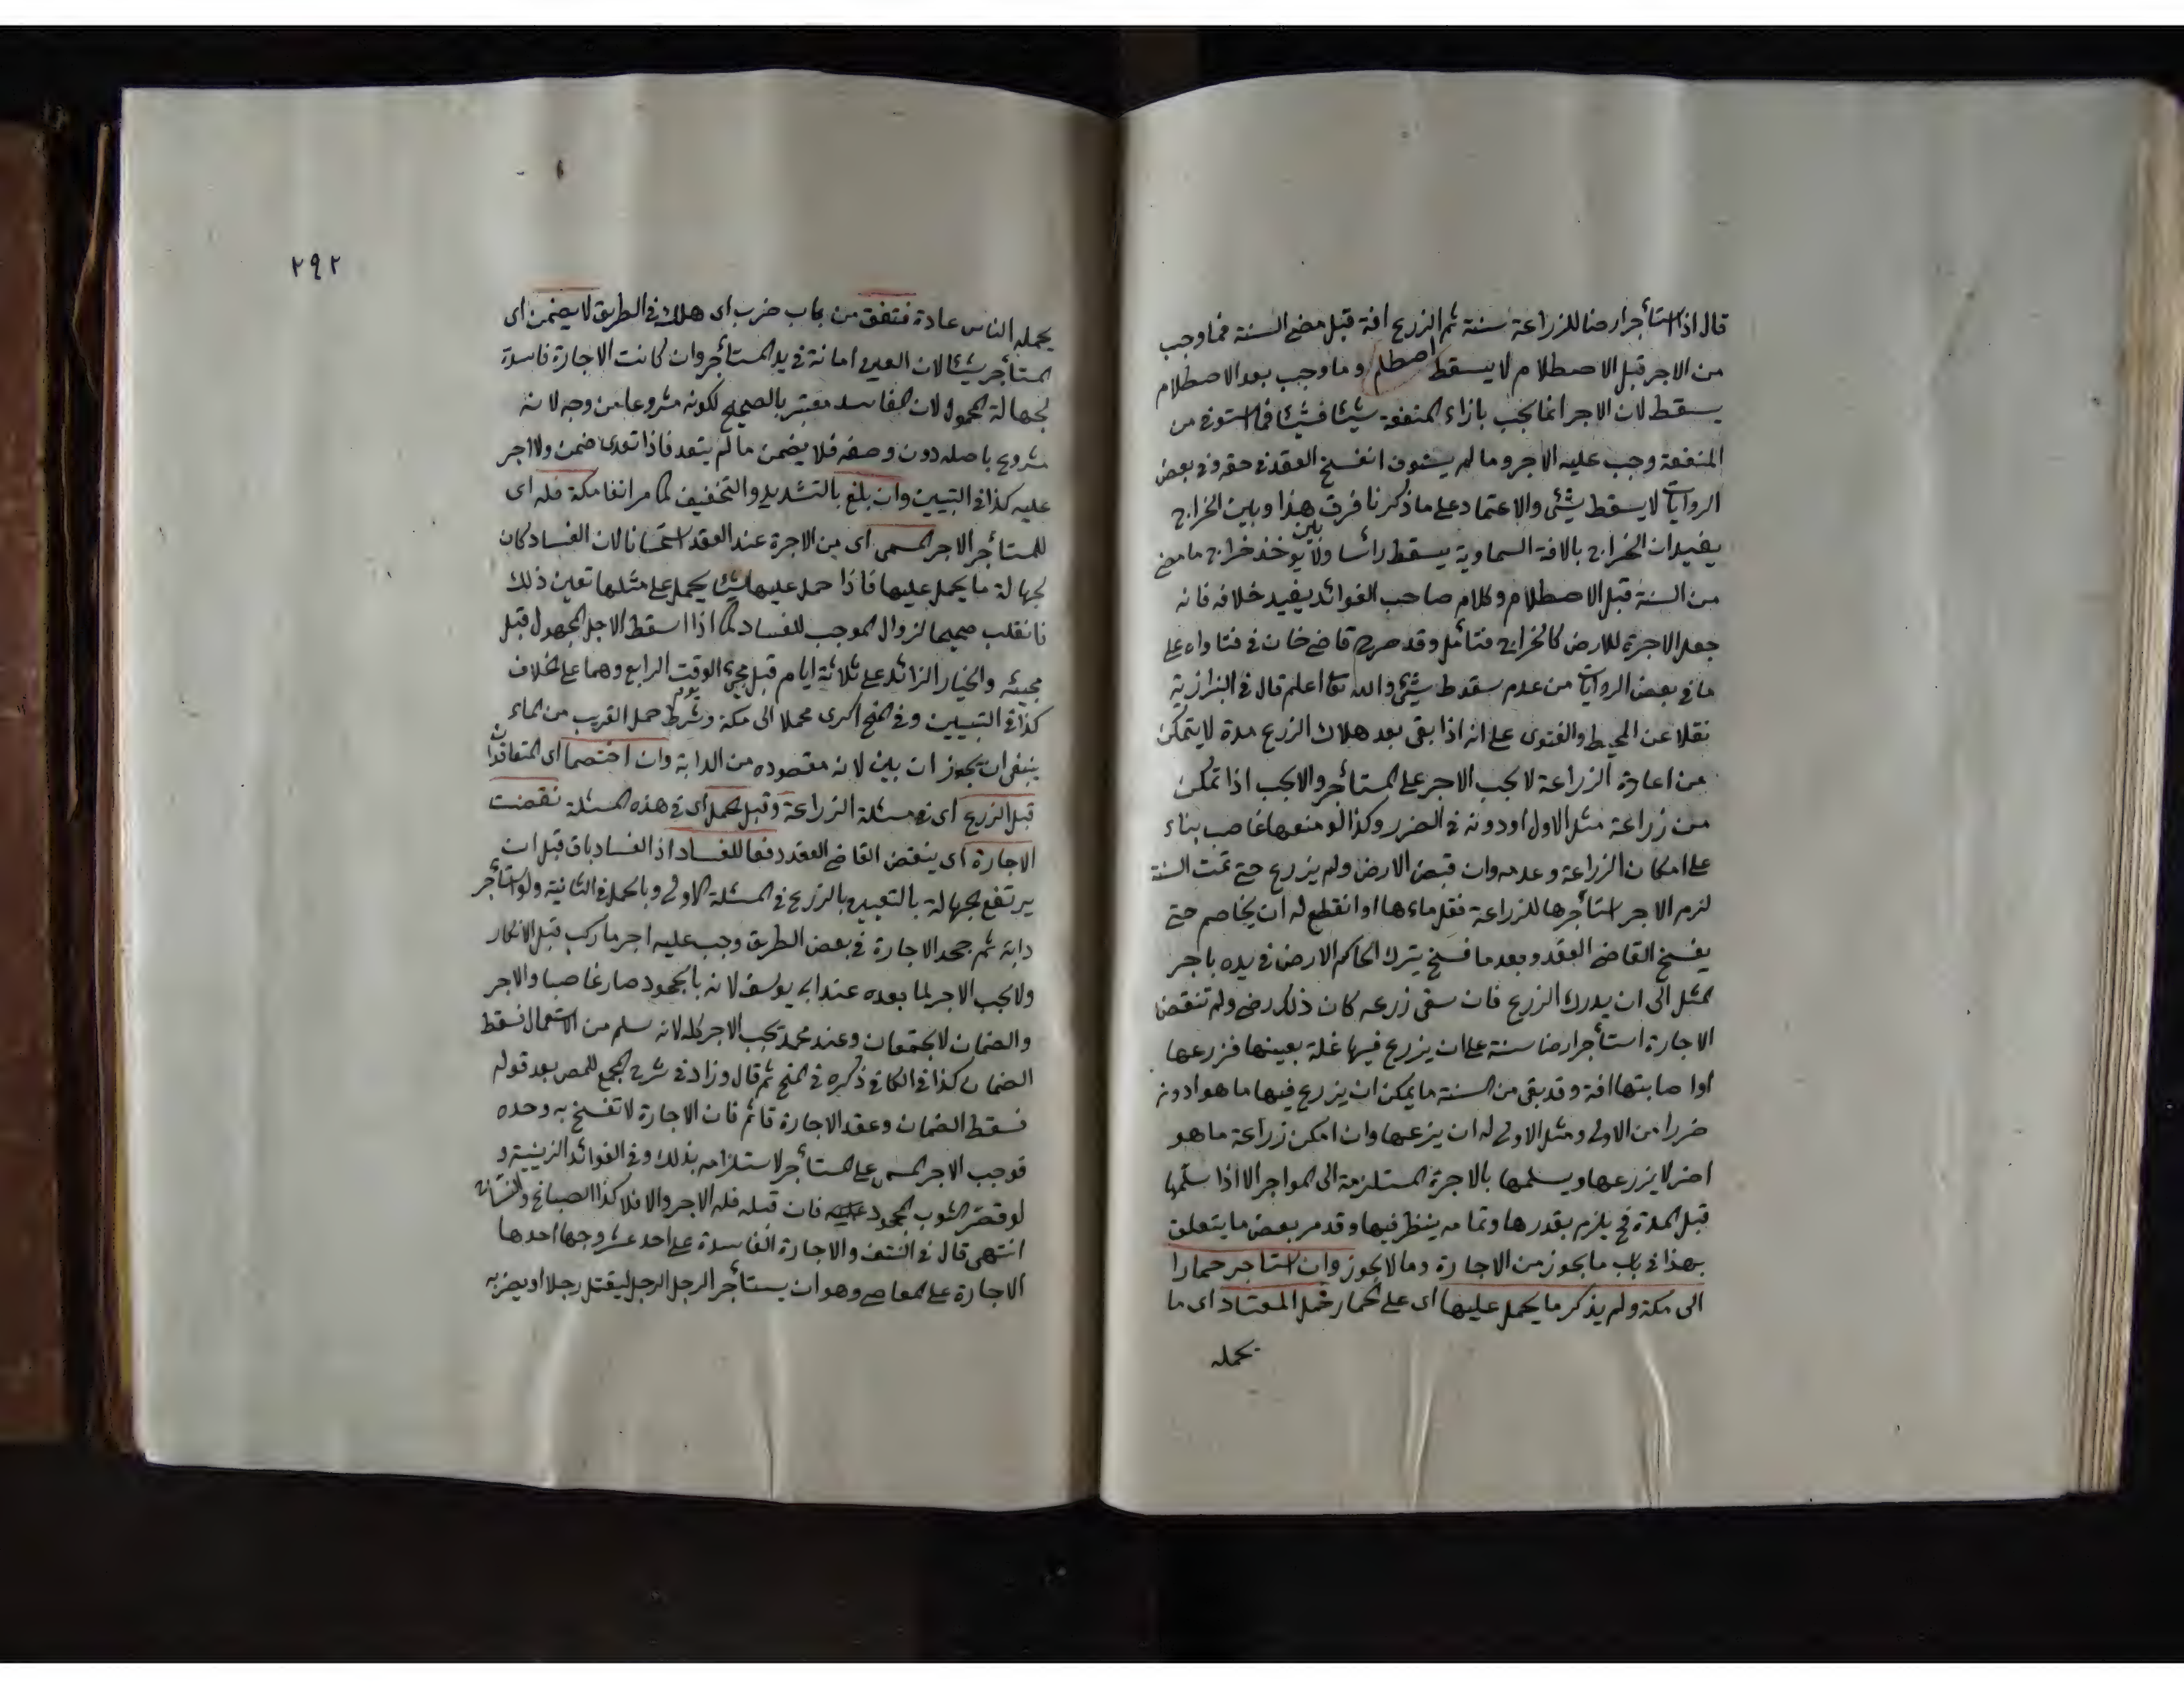 قال اذا استأجر ارضا للزراعة سنة ثم الزرع افة قبل مضى السنة فما وجب
من الاجر قبل الاصطلام لا يسقط اصطلم وما وجب بعد الاصطلام
يسقط لان الاجر انما يجب بازاء المنفعة شيئا فشيئا فما استوفى من
المنفعة وجب عليه الاجر وما لم يستوف انفسخ العقد فى حقه وفى بعض
الروايات لا يسقط شئ والاعتماد على ما ذكرنا فرق بين هذا وبين الخراج
يفيد ان الخراج بالافة السماوية يسقط رأسا ولا يوخذ خراج ما مضى
من السنة قبل الاصطلام وكلام صاحب الفوائد يفيد خلافه فانه
جعل الاجرة للارض كالخراج فتأمل وقد صرح قاضى خان فى فتاواه على
ما فى بعض الروايات من عدم سقوط شئ والله تعا اعلم قال فى البزازية
نقلا عن المحيط والفتوى على انه اذا بقى بعد هلاك الزرع مدة لا يتمكن
من اعادة الزراعة لا يجب الاجر على المستأجر والا يجب اذا تمكن
من زراعة مثل الاول او دونه فى الضرر وكذا لو منعها غاصب بناء
على امكان الزراعة وعدمه وان قبض الارض ولم يزرع حتى تمت السنة
لزم الاجر استأجرها للزراعة فقل ماءها او انقطع له ان يخاصم حتى
يفسخ القاضى العقد وبعد ما فسخ يترك الحاكم الارض فى يده باجر
المثل الى ان يدرك الزرع فان سقى زرعه كان ذلك رضى ولم تنقض
الاجارة استأجر ارضا سنة على ان يزرع فيها غلة بعينها فزرعها
او اصابتها افة وقد بقى من السنة ما يمكن ان يزرع فيها ما هو ادون
ضررا من الاولى ومثل الاولى له ان يزرعها وان امكن زراعة ما هو
اضر لا يزرعها ويسلمها بالاجرة المستلزمة الى المواجر الا اذا سلمها
قبل المدة فح يلزم بقدرها وتمامه ينظر فيها وقد مر بعض ما يتعلق
بهذا فى باب ما يجوز من الاجارة وما لا يجوز وان استاجر حمارا
الى مكة ولم يذكر ما يحمل عليها اى على الحمار فحمل المعتاد اى ما
يحمله
٢٩٢
يحمله الناس عادة فنفق من باب ضرب اى هلك فى الطريق لا يضمن اى
المستأجر شيئا لان العين امانة فى يد المستأجر وان كانت الاجارة فاسدة
لجهالة المحمول لان الفاسد معتبر بالصحيح لكونه مشروعا من وجه لانه
مشروع باصله دون وصفه فلا يضمن ما لم يتعد فاذا تعدى ضمن ولا اجر
عليه كذا فى التبيين وان بلغ بالتشديد والتخفيف كما مر انفا مكة فله اى
للمستأجر الاجر المسمى اى من الاجرة عند العقد استحسانا لان الفساد كان
لجهالة ما يحمل عليها فاذا حمل عليها شيئا يحمل على مثلها تعين ذلك
فانقلب صحيحا لزوال الموجب للفساد كما اذا اسقط الاجل المجهول قبل
مجيئه والخيار الزائد على ثلاثة ايام قبل مجئ الوقت يوم الرابع وهما على الخلاف
كذا فى التبيين وفى المنح اكرى محملا الى مكة وشرط حمل القرب من الماء
ينبغى ان يجوز ان بين لانه مقصوده من الدابة وان اختصما اى المتعاقدان
قبل الزرع اى فى مسئلة الزراعة وقبل الحمل اى فى هذه المسئلة نقضت
الاجارة اى ينقض القاضى العقد دفعا للفساد اذ الفساد باق قبل ان
يرتفع الجهالة بالتعيين بالزرع فى المسئلة الاولى وبالحمل فى الثانية ولو استأجر
دابة ثم جحد الاجارة فى بعض الطريق وجب عليه اجر ما ركب قبل الانكار
ولا يجب الاجر لما بعده عند ابى يوسف لانه بالجحود صار غاصبا والاجر
والضمان لا يجتمعان وعند محمد يجب الاجر كله لانه سلم من الاستعمال فسقط
الضمان كذا فى الكافى ذكره فى المنح ثم قال وزاد فى شرح المجمع للمص بعد قوله
فسقط الضمان وعقد الاجارة قائم فان الاجارة لا تفسخ به وحده
فوجب الاجر المسمى على المستأجر لاستلزامه بذلك وفى الفوائد الزينية و
لو قصر الثوب المجحود فان قبله فله الاجر والا فلا كذا الصباغ والنساج
انتهى قال فى النتف والاجارة الفاسدة على احد عشر وجها احدها
الاجارة على المعاصى وهو ان يستأجر الرجل الرجل ليقتل رجلا او يضربه